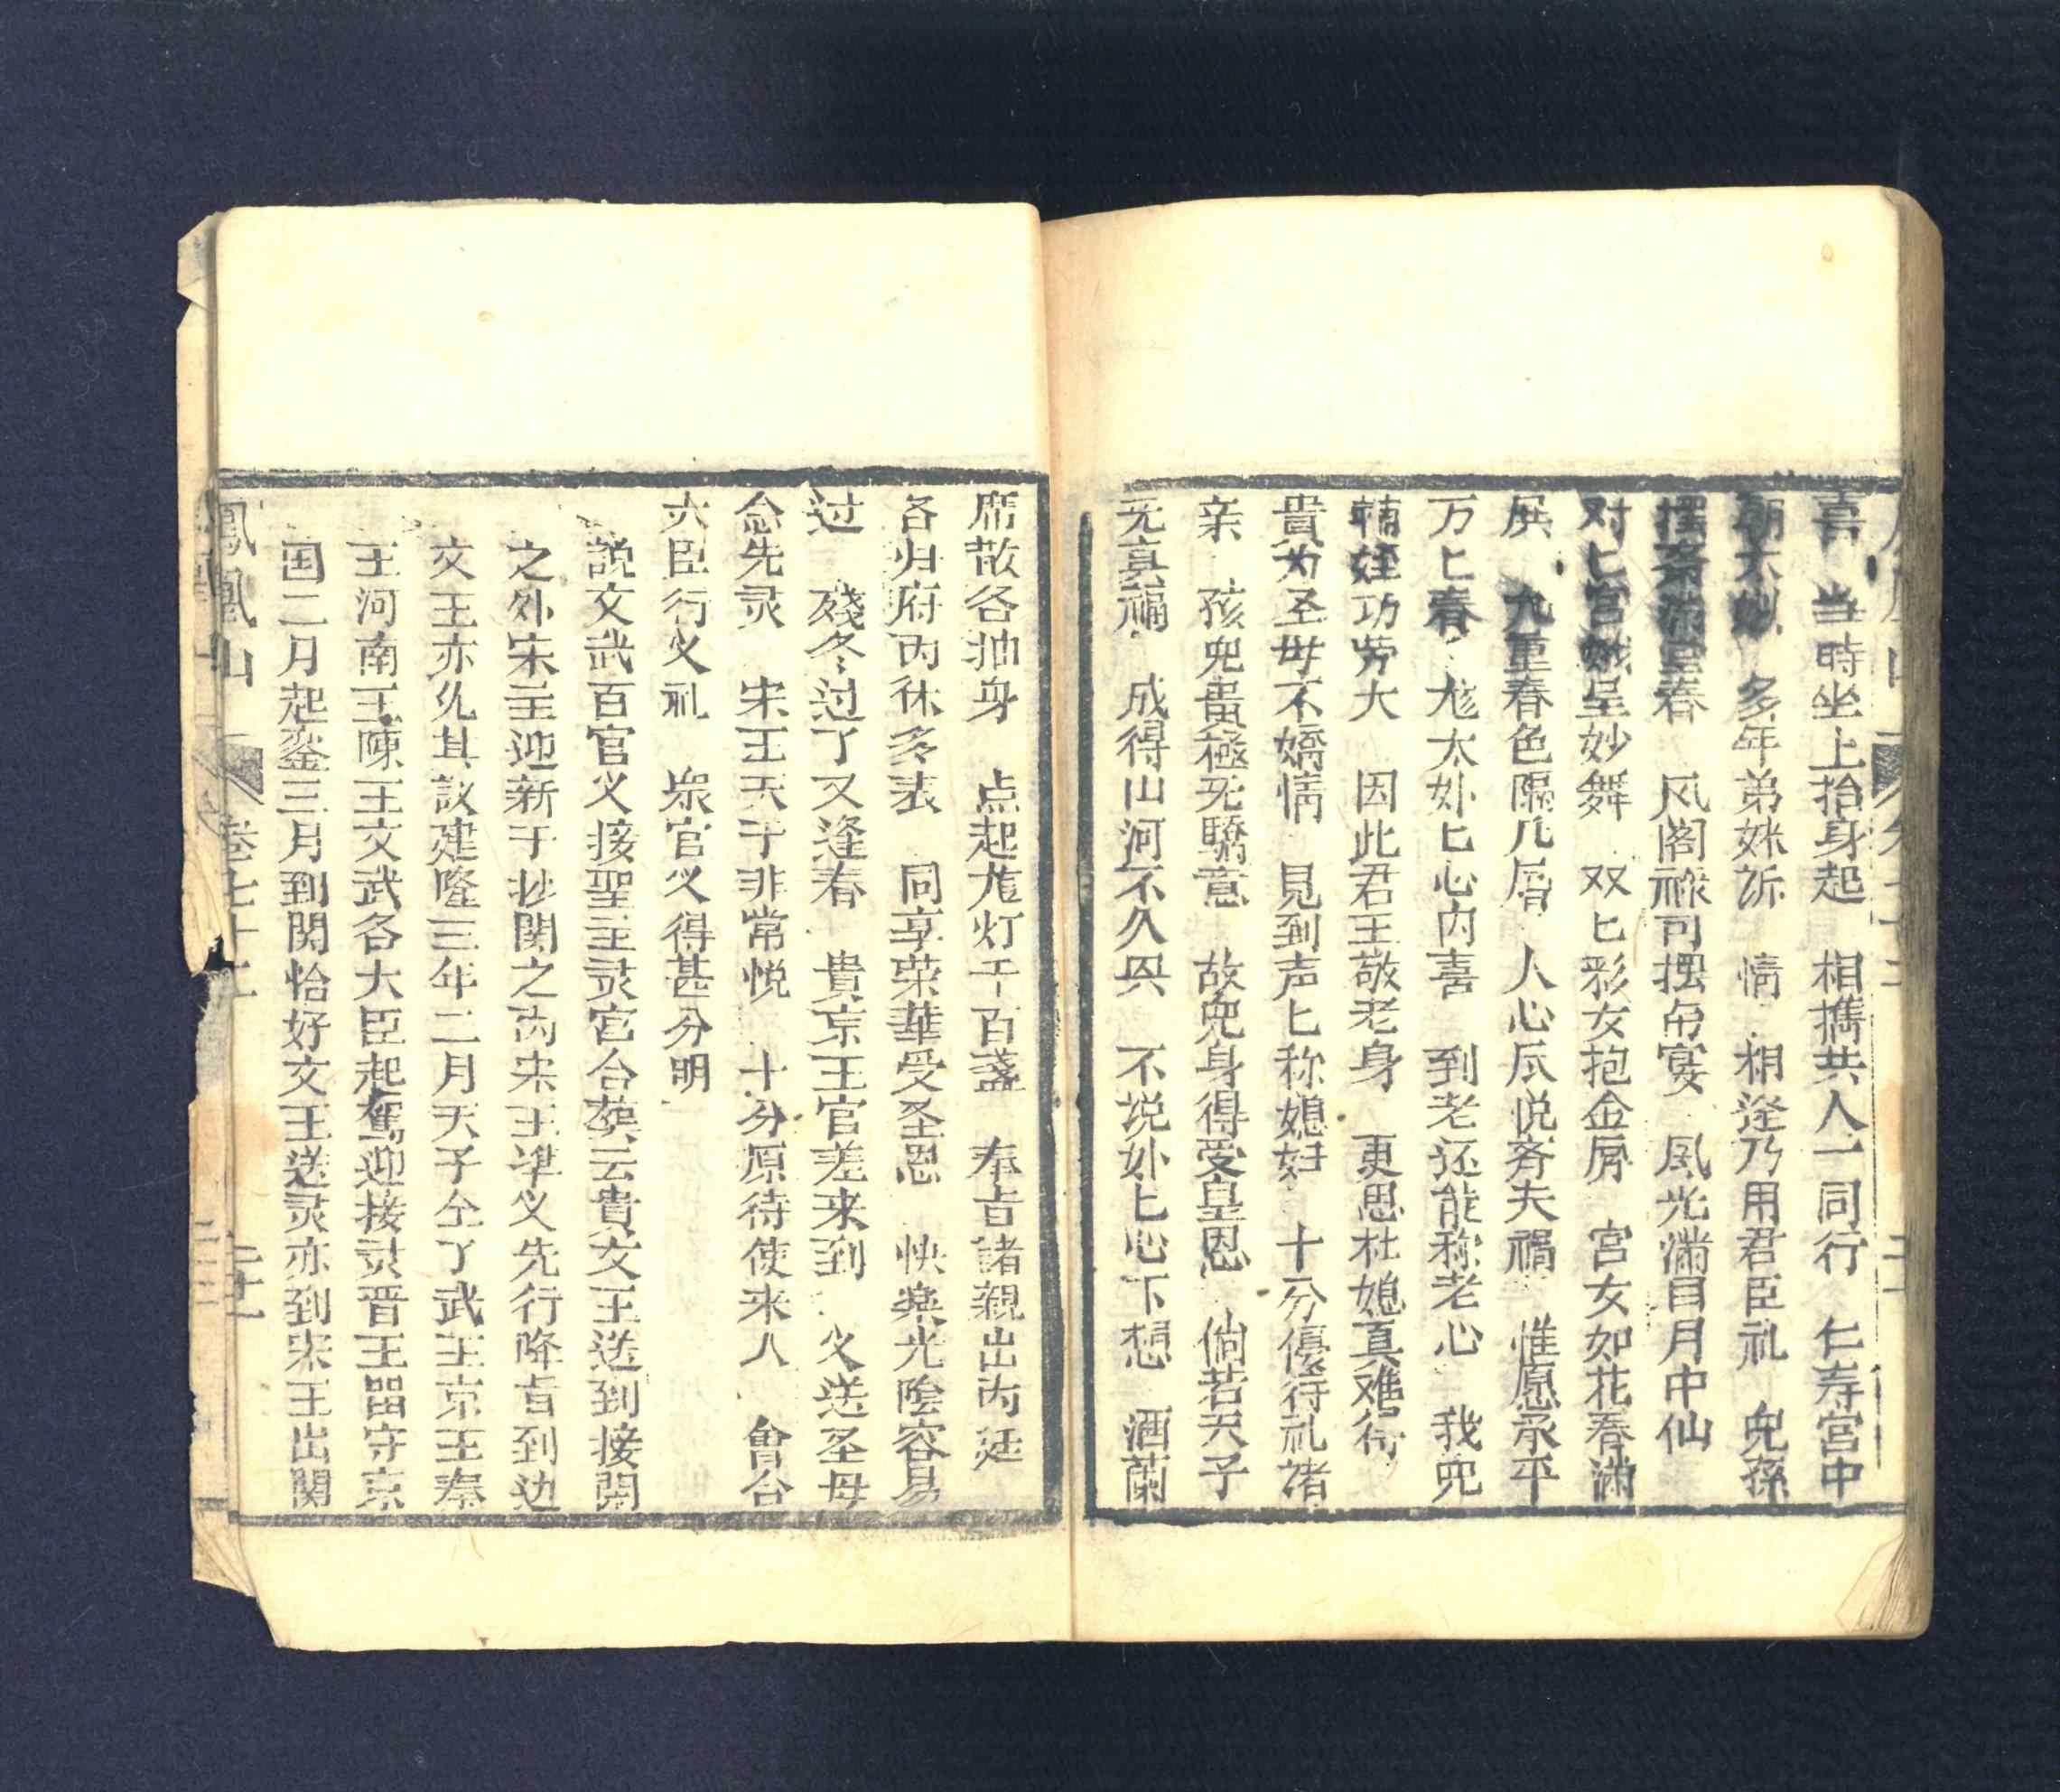 喜 当時坐上抬身起 相携共人一同行 仁寿宮中
朝太 多年弟妹訴 情 相逢乃用君臣礼 兒孫
摆 春 风阁禄司摆吊宴 風光满目月中仙
对匕宮娥呈妙舞 双匕彩女抱金屏 宮女如花春满
屏 九重春色隔几層 人心 悦斉夫禍 惟愿承平
万匕春 太 匕心内喜 到老还能称老心 我兒
輔 功劳大 因此君王敬老身 更思杜媳真难得
貴为圣母不嬌情 見到声匕称媳妇 十分優待礼诸
亲 孩兒 極死驕意 故兒身得受皇恩 倘若天子
无真福 成得山河不久 不説 匕心下想 酒蘭
席散各抽身 点起 灯千百盞 奉旨諸親出内廷
各归府内休多表 同享荣華受圣恩 快樂光陰容易
过 殘冬过了又逢春 貴京王官差来到 义送圣母
念先灵 宋王天子非常悦 十分原待使来人 會合
六臣行义礼 眾官义得甚分明
説文武百官义接聖主灵官合葬云貴文王送到接閞
之外宋主迎新于抄関之内宋王準义先行降旨到边
文王亦 其説建隆三年二月天子仝了武王京王奉
王河南王陳王文武各大臣起駕迎接灵晋王畱守京
国二月起鑾三月到関恰好文王送灵亦到宋王出関
鳳凰山 卷七十二 二十一